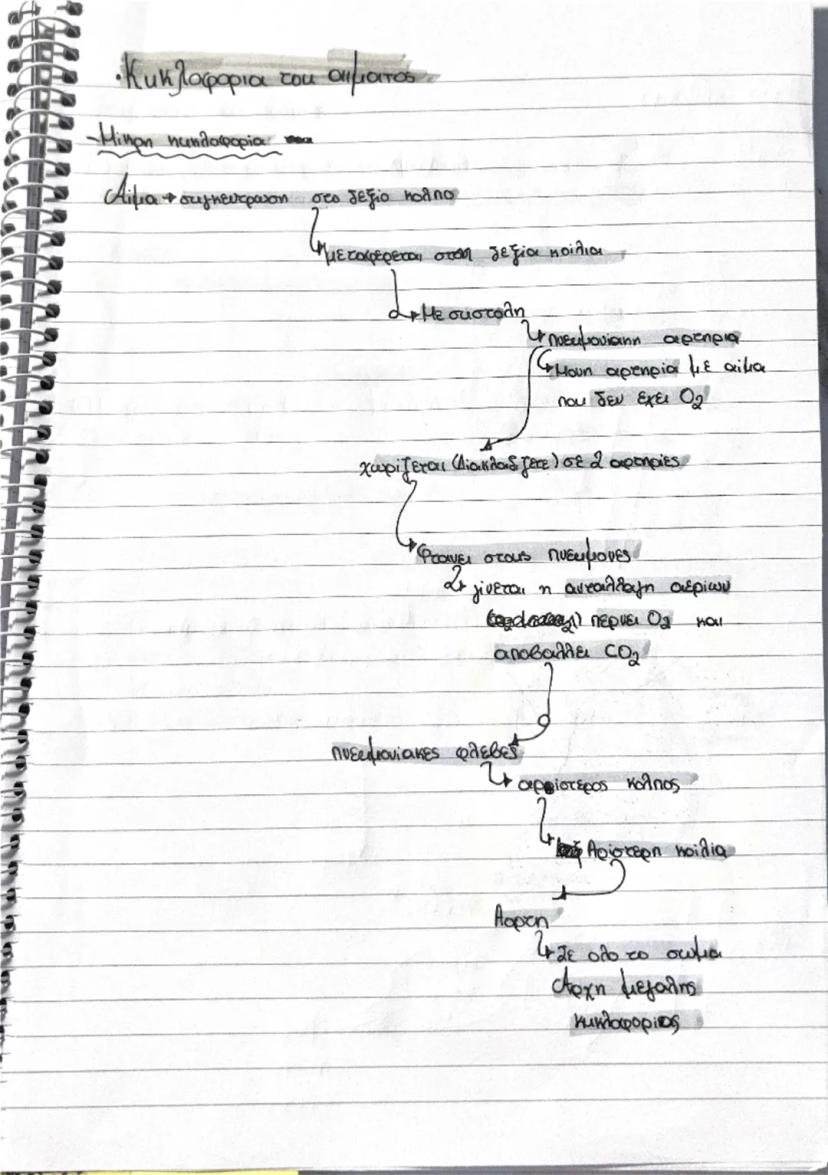 ·Κυκλοφορια του αιματος
-Μικρη κυκλοφορια
Αιμα → συγκεντρωση στο δεξιο κολπο
μεταφερεται στη δεξια κοιλια
Με συστολη
πνευμονικη αρτηρια
Μονη αρτηρια με αιμα
που δεν εχει O2
χωριζεται (Διακλαδιζετε) σε 2 αρτηριες
Φτανει στους πνευμονες
γινεται η ανταλλαγη αεριων
περνει O2 και
αποβαλλει CO2
πνευμονιακες φλεβες
αριστερος κολπος
Αριστερη κοιλια
Αορτη
Σε ολο το σωμα
Αρχη μεγαλης
κυκλοφοριας